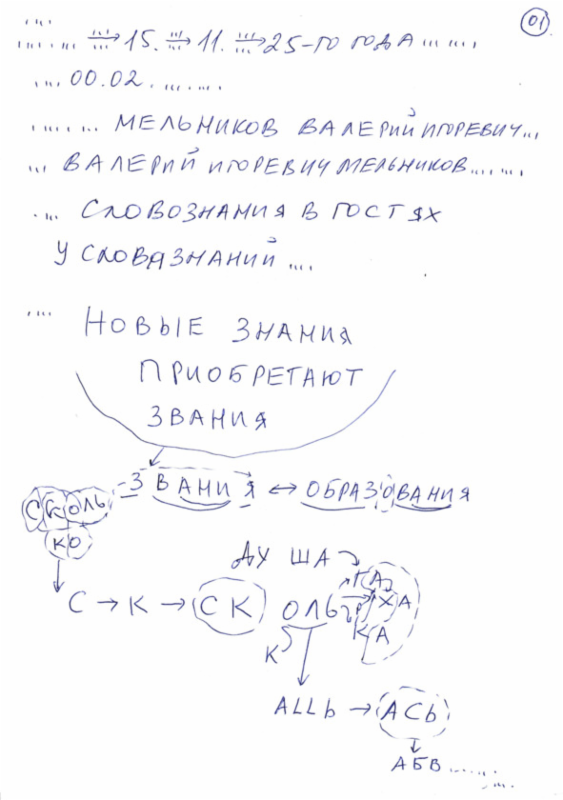 01
... ... ⇒ 15. ⇒ 11. ⇒ 25-ГО ГОДА ... ...
... 00.02. ... ...
... ... МЕЛЬНИКОВ ВАЛЕРИЙ ИГОРЕВИЧ...
... ВАЛЕРИЙ ИГОРЕВИЧ МЕЛЬНИКОВ... ...
... СЛОВОЗНАНИЯ В ГОСТЯХ
У СЛОВАЗНАНИЙ ...
... НОВЫЕ ЗНАНИЯ
ПРИОБРЕТАЮТ
ЗВАНИЯ
-ЗВАНИЯ ↔ ОБРАЗОВАНИЯ
СКОЛЬ
КО
ДУ ША
КА
С → К → СК ОЛЬ → ХА
К КА
ALLЬ → АСЬ
АБВ ... ...